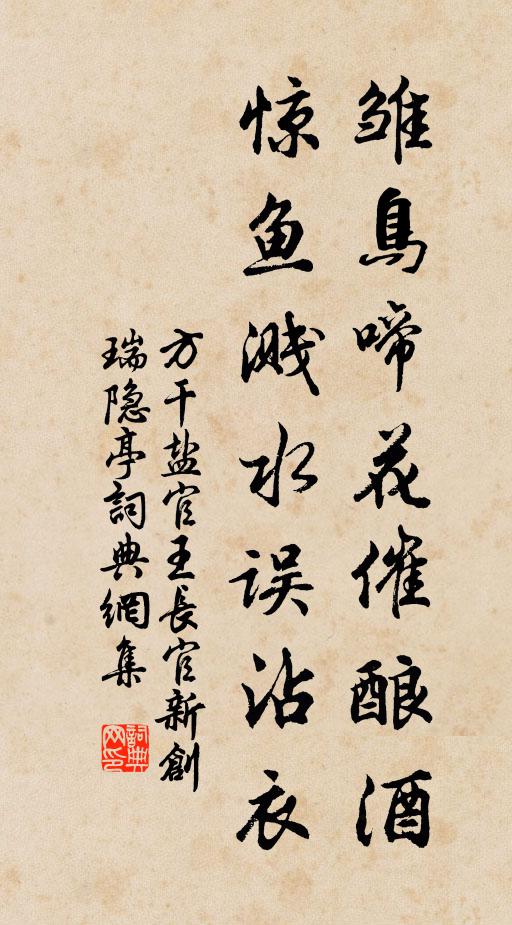 雏鳥啼花催酿酒
惊鱼溅水误沾衣
方干盐官王長官新創
瑞隐亭詞典網集
詞典网印